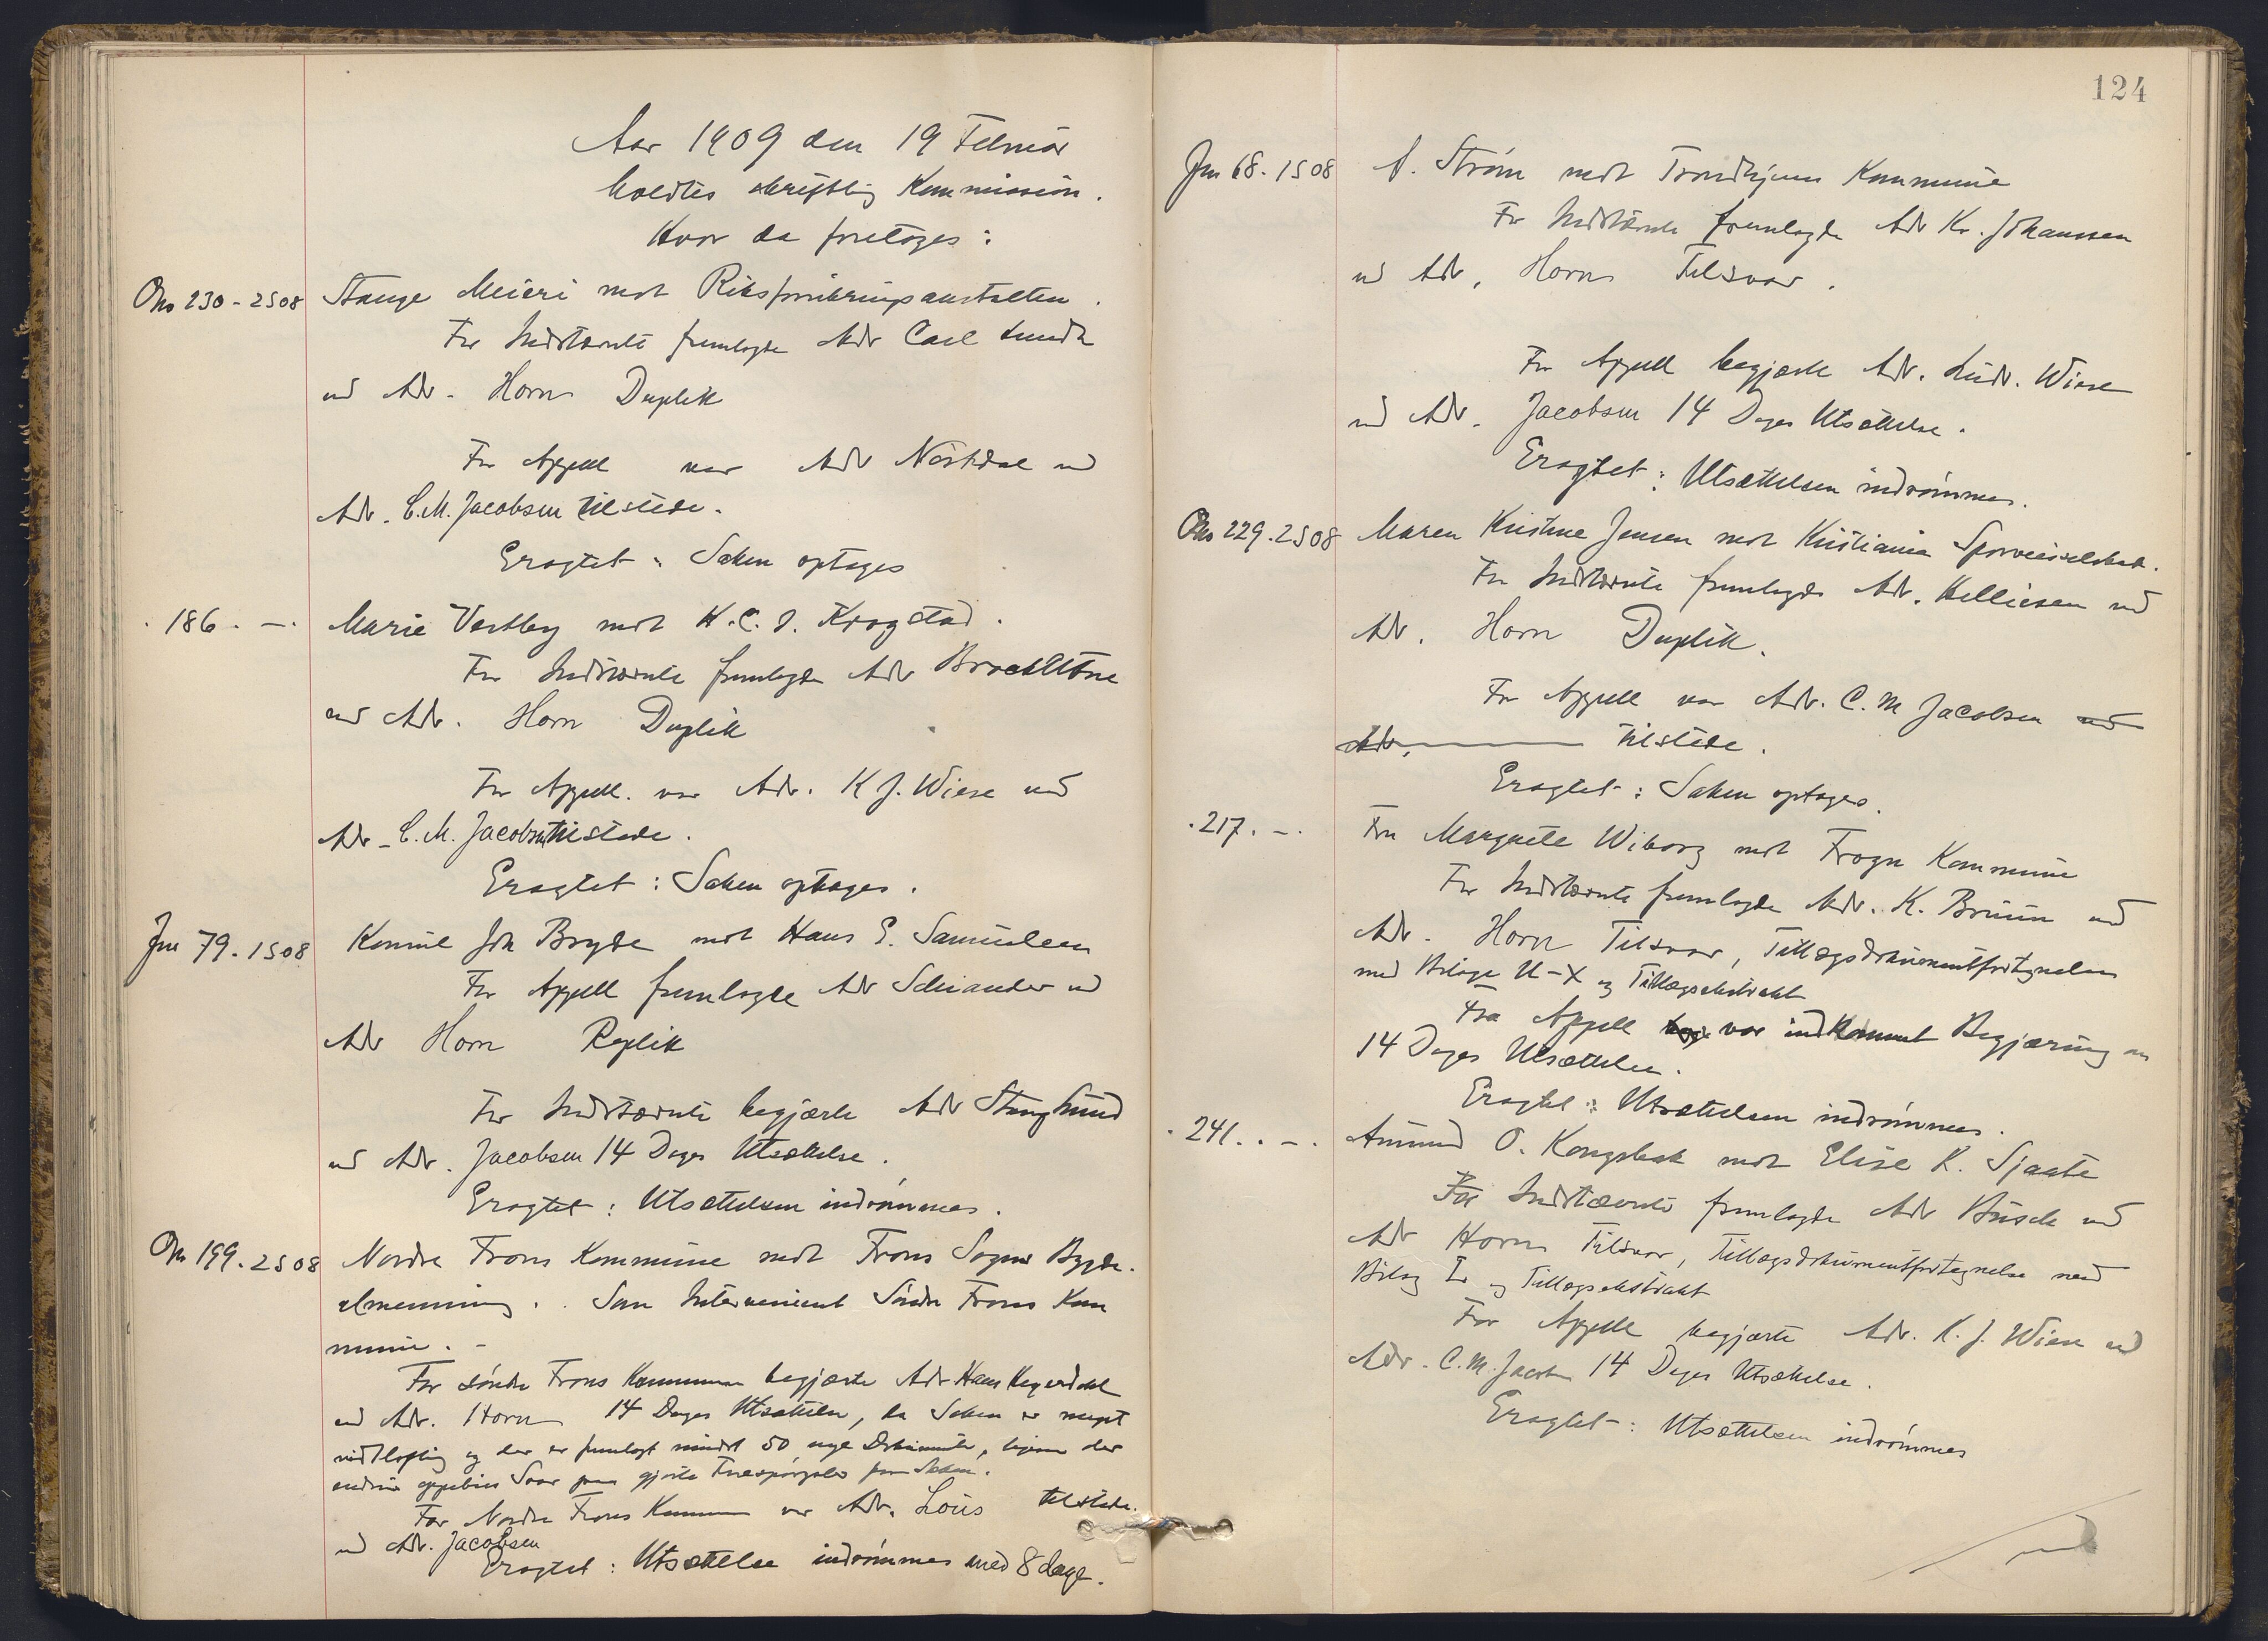 Aar 1909 den 19 Februar
holdtes skriftlig Kommission.
Hvor da foretoges:
Ono 230 - 2 S 08 Stange Meieri mot Riksforsikringsanstalten.
For Indstevnte fremlagde Adv Carl Lundh
ved Adv. Horn Duplik
For Appell var Adv Nørstdal ved
Adv. C.M. Jacobsen tilstede.
Eragtet: Saken optages
186. - . Marie Vestby mot K. C. J. Krogstad.
For Indstevnte fremlagde Adv
ved Adv. Horn Duplik
For Appell. var Adv. K J. Wiese ved
Adv. C. M. Jacobsen tilstede.
Eragtet: Saken optages.
Jnu 79. 1 S 08 Konsul Joh Bryde mot Hans E. Samuelsen
For Appell fremlagde Adv Schiander ved
Adv Horn Replik
For Indstævnte begjærte Adv Stenglund
ved Adv. Jacobsen 14 Dages Utsættelse.
Eragtet: Utsættelsen indrømmes.
Ono 199. 2 S 08 Nordre Frons Kommune mot Frons Sogns Bygde-
almenning. Som Intervenient Søndre Frons Kom
mune. -
For søndre Frons Kommune begjærte Adv Hans
ved Adv. Horn 14 Dages Utsættelse, da Saken er meget
vidtløftig og der er fremlagt mindst 50 nye Dokumenter, ligesom der
Svar paa gjorte Forespørgsler
For Nordre Frons Kommune var Adv. Lous tilstede.
ved Adv. Jacobsen
Eragtet: Utsættelse indrømmes med 8 dage.
124
Jnu 68. 1 S 08 A. Strøm mot Trondhjems Kommune
For Indstævnte fremlagde Adv Kr. Johanssen
ved Adv. Horn Tilsvar.
For Appell begjærte Adv. Ludv. Wiese
ved Adv. Jacobsen 14 Dages Utsættelse.
Eragtet: Utsættelsen indrømmes.
Ono 229. 2 S 08 Maren Kristine Jensen mot Kristiania Sporveisselskab.
For Indstævnte fremlagde Adv. Helliesen ved
Adv. Horn Duplik.
For Appell var Adv. C. M Jacobsen ved
Adv. tilstede.
Eragtet: Saken optages.
. 217. - . Fru Margrete Wiborg mot Frogn Kommune
For Indstævnte fremlagde Adv. K. Bruun ved
Adv. Horn Tilsvar, Tillægsdokumentfortegnelse
med Bilage U - X og Tillægsekstrakt
Fra Appell var indkommet Begjæring om
14 Dages Utsættelse.
Eragtet: Utsættelsen indrømmes.
. 241. . - . Amund O. Kongsbak mot Elise K. Sjaate
For Indstævnte fremlagde Adv Busch ved
Adv Horn Tilsvar, Tillægsdokumentfortegnelse med
Bilag og Tillægsekstrakt
For Appell begjærte Adv. K. J. Wiese ved
Adv. C. M. Jacobsen 14 Dages Utsættelse.
Eragtet: Utsættelsen indrømmes